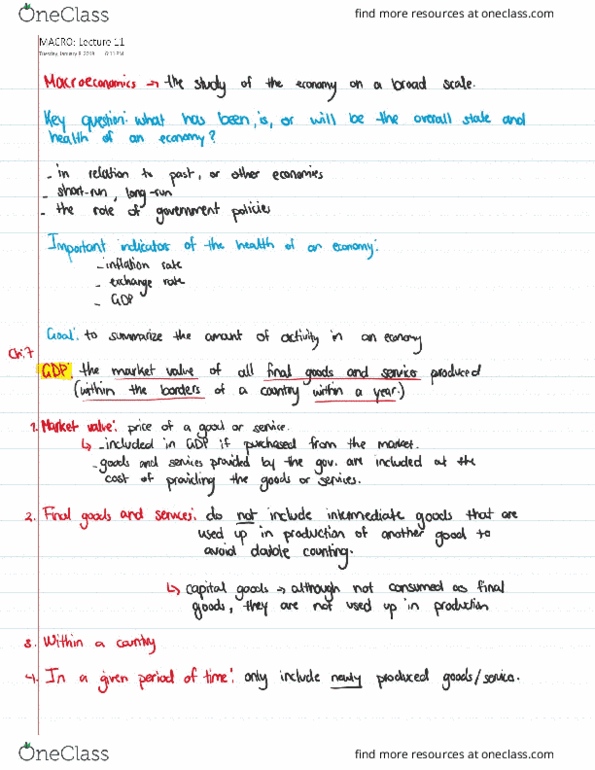 OneClass
find more resources at oneclass.com
MACRO: Lecture 11
Tuesday, January 8, 2019
Macroeconomics → the study of the economy on a broad scale.
Key question: what has been, is, or will be the overall state and
health of an economy?
- in relation to past, or other economies
- short-run, long-run
- the role of government policies
Important indicator of the health of an economy:
- inflation rate
- exchange rate
- GDP
Goal: to summarize the amount of activity in an economy
Ch.7
GDP: the market value of all final goods and service produced
(within the borders of a country within a year.)
1. Market value: price of a good or service.
↳ - included in GDP if purchased from the market.
- goods and services provided by the gov. are included at the
cost of providing the goods or services.
2. Final goods and services: do not include intermediate goods that are
used up in production of another good to
avoid double counting.
↳ capital goods → although not consumed as final
goods, they are not used up in production
3. Within a country
4. In a given period of time: only include newly produced goods/service.
OneClass
find more resources at oneclass.com